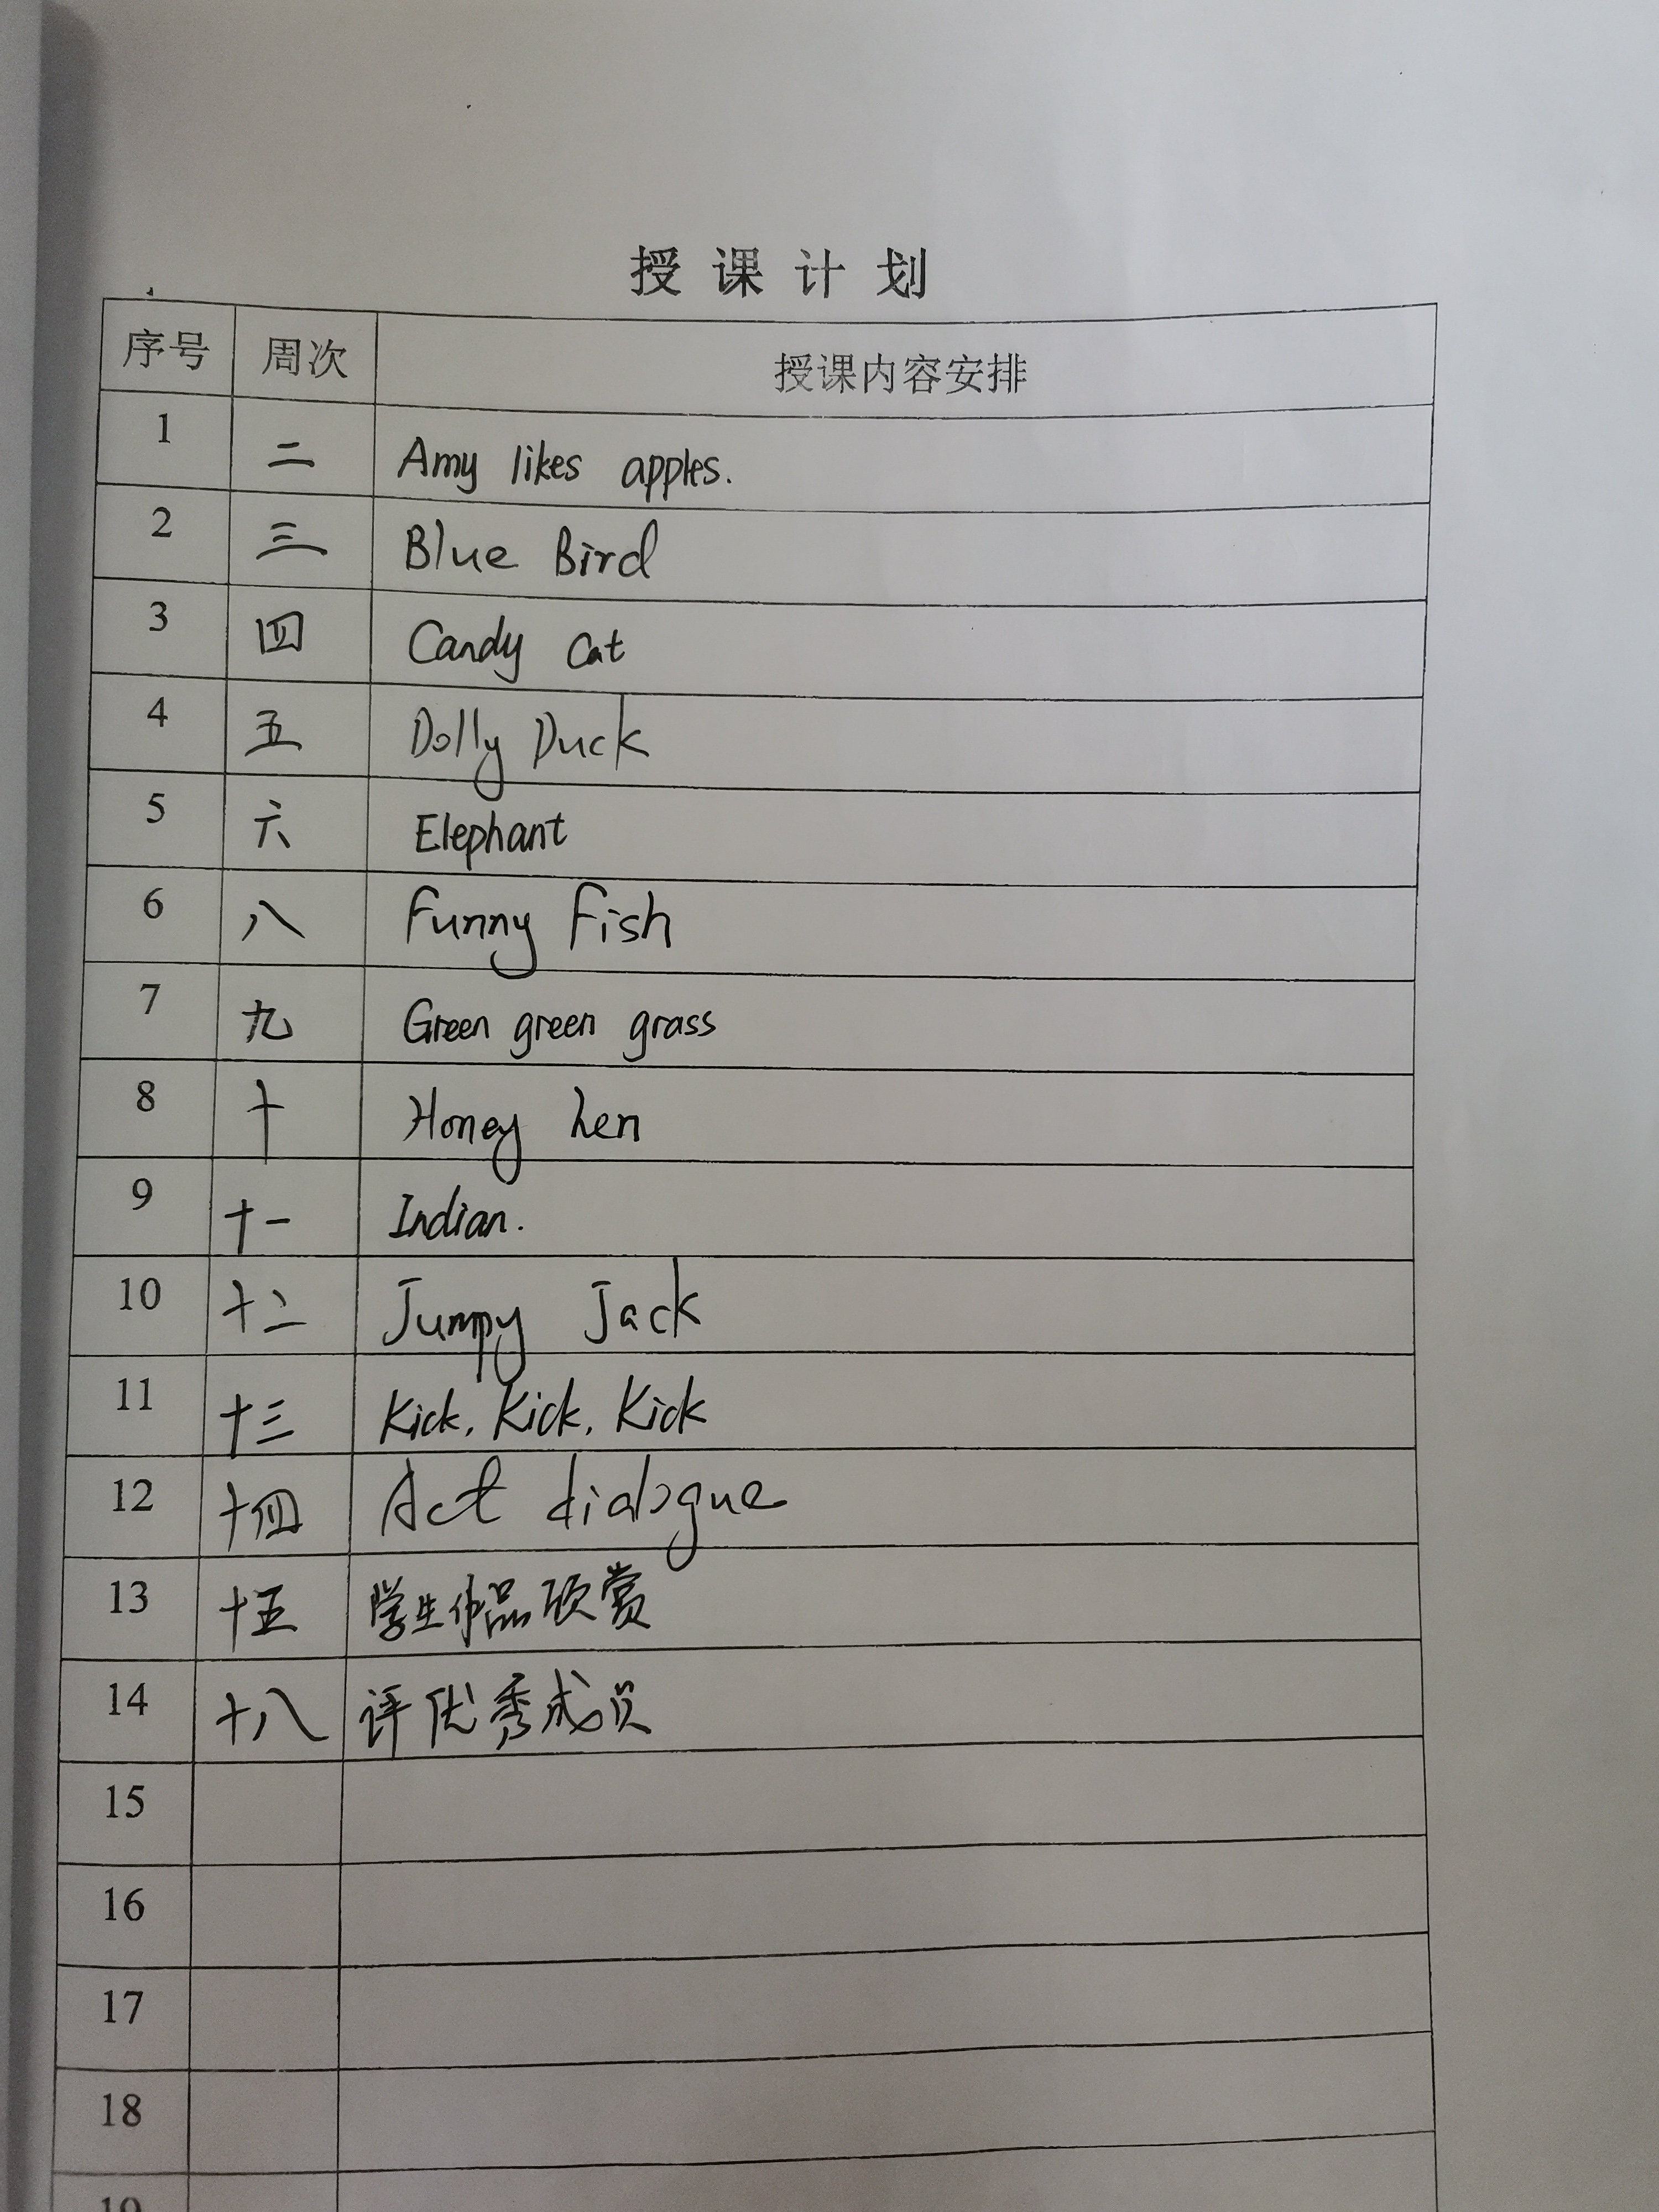 授课计划
序号 周次 授课内容安排
1 二 Amy likes apples.
2 三 Blue Bird
3 四 Candy Cat
4 五 Dolly Duck
5 六 Elephant
6 八 Funny Fish
7 九 Green green grass
8 十 Honey hen
9 十一 Indian.
10 十二 Jumpy Jack
11 十三 Kick, Kick, Kick
12 十四 Act dialogue
13 十五 学生作品欣赏
14 十八 评优秀成员
15
16
17
18
19